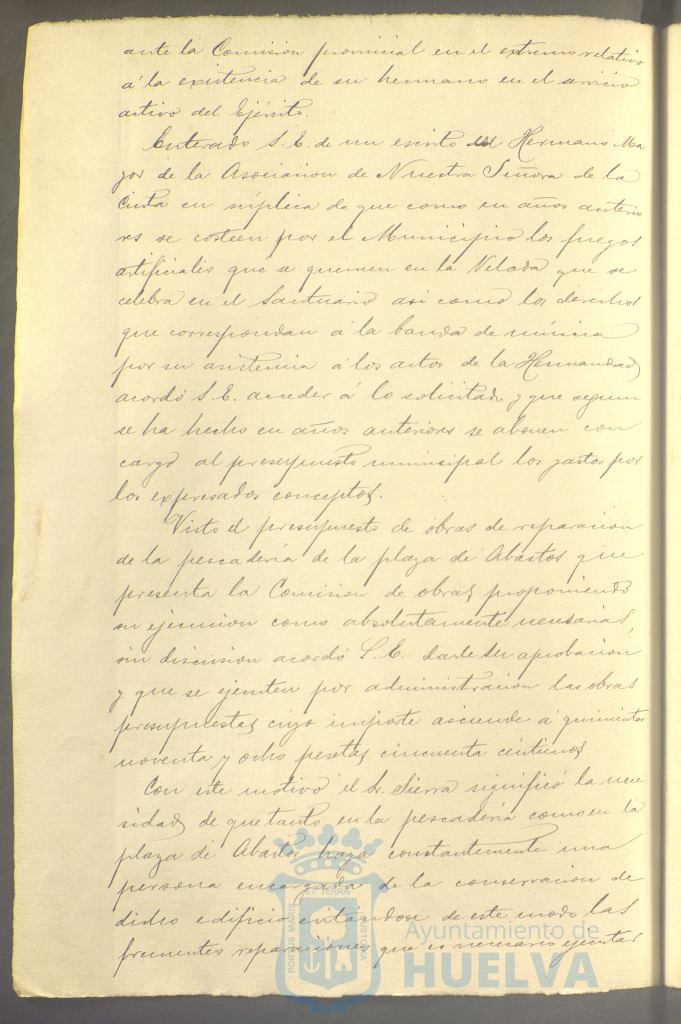 ante la Comision provincial en el extremo relativo
á la existencia de su hermano en el servicio
activo del Ejército.
Enterado S. E. de un escrito del Hermano Ma
yor de la Asociacion de Nuestra Señora de la
Cinta en súplica de que como en años anterio
res se costeen por el Municipio los fuegos
artificiales que se quemen en la Velada que se
celebra en el Santuario asi como los derechos
que correspondan á la banda de música
por su asistencia á los actos de la Hermandad
acordó S. E. acceder á lo solicitado y que segun
se ha hecho en años anteriores se abonen con
cargo al presupuesto municipal los gastos por
los expresados conceptos.
Visto el presupuesto de obras de reparacion
de la pescaderia de la plaza de Abastos que
presenta la Comision de obras proponiendo
su ejecucion como absolutamente necesarias,
sin discusion acordó S. E. darle su aprobacion
y que se ejecuten por administracion las obras
presupuestas cuyo importe asciende á quinientas
noventa y ocho pesetas cincuenta céntimos
Con este motivo el Sr. Sierra significó la nece
sidad de que tanto en la pescaderia como en la
plaza de Abastos haya constantemente una
persona encargada de la conservacion de
dicho edificio evitándose de este modo las
frecuentes reparaciones que es necesario ejecutar
PORTUS MARIS ET TERRAE CUSTODIA
Ayuntamiento de
HUELVA